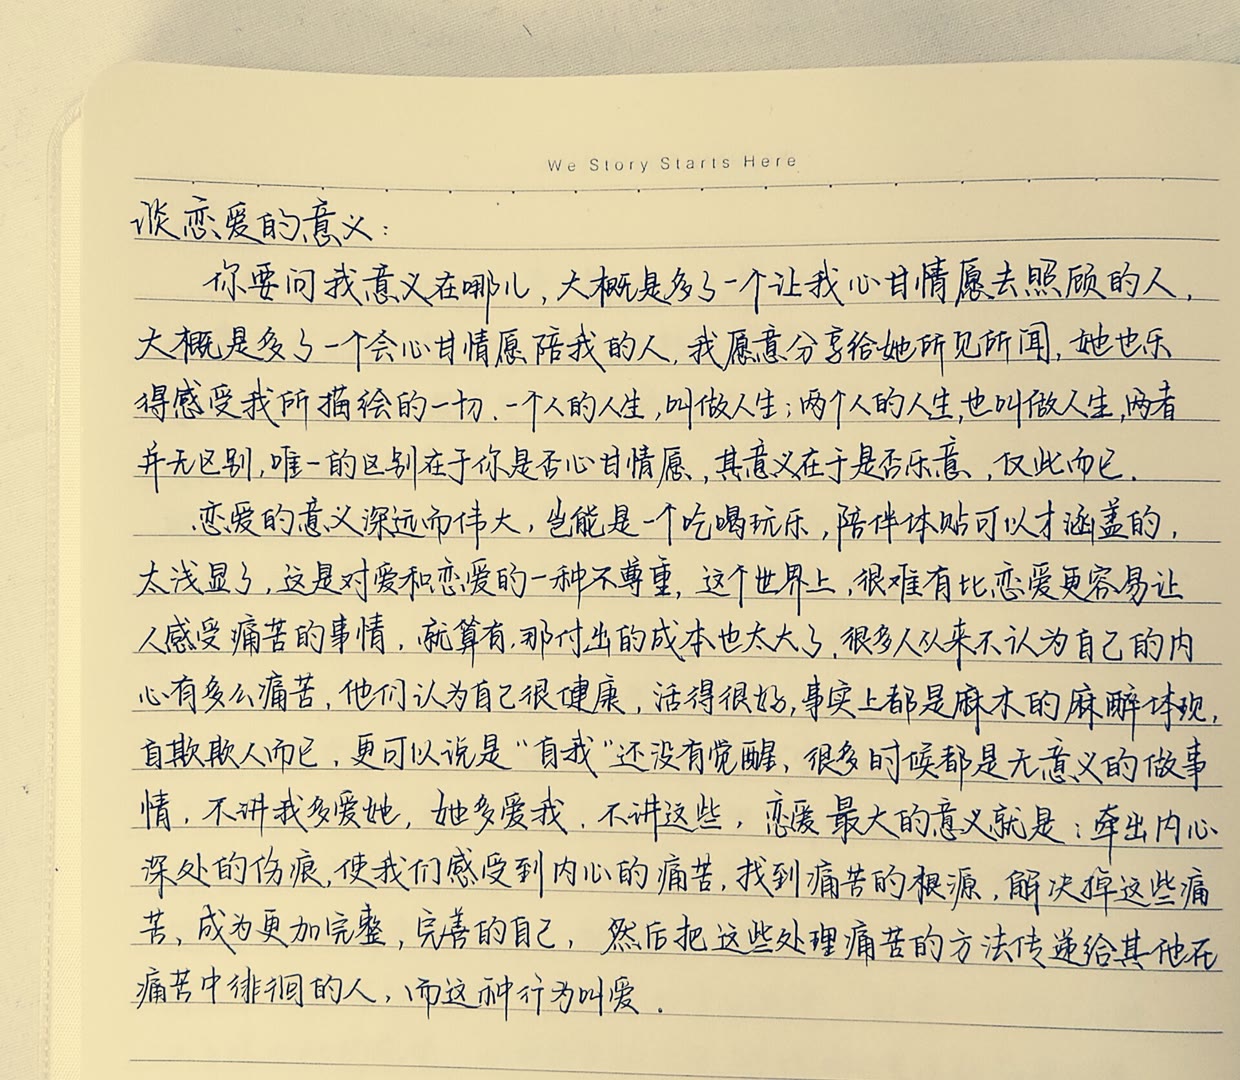 We Story Starts Here
谈恋爱的意义：
你要问我意义在哪儿，大概是多了一个让我心甘情愿去照顾的人，
大概是多了一个会心甘情愿陪我的人，我愿意分享给她所见所闻，她也乐
得感受我所描绘的一切．一个人的人生，叫做人生；两个人的人生，也叫做人生，两者
并无区别，唯一的区别在于你是否心甘情愿，其意义在于是否乐意，仅此而已．
恋爱的意义深远而伟大，岂能是一个吃喝玩乐，陪伴体贴可以才涵盖的，
太浅显了，这是对爱和恋爱的一种不尊重，这个世界上，很难有比恋爱更容易让
人感受痛苦的事情，就算有，那付出的成本也太大了，很多人从来不认为自己的内
心有多么痛苦，他们认为自己很健康，活得很好，事实上都是麻木的麻醉体现，
自欺欺人而已，更可以说是“自我”还没有觉醒，很多时候都是无意义的做事
情，不讲我多爱她，她多爱我，不讲这些，恋爱最大的意义就是：牵出内心
深处的伤痕，使我们感受到内心的痛苦，找到痛苦的根源，解决掉这些痛
苦，成为更加完整，完善的自己，然后把这些处理痛苦的方法传递给其他在
痛苦中徘徊的人，而这种行为叫爱．